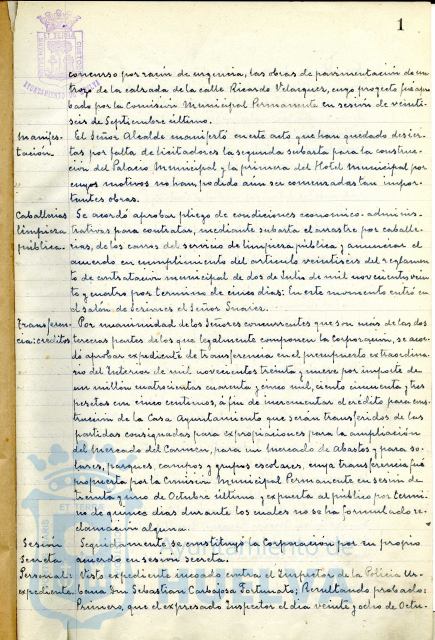 1
concurso por razón de urgencia, las obras de pavimentación de un
trozo de la calzada de la calle Ricardo Velazquez, cuyo proyecto fué apro-
bado por la Comisión Municipal Permanente en sesión de veinti-
seis de Septiembre último.
manifes- El Señor Alcalde manifestó en este acto que han quedado desier-
tación. tas por falta de licitadores la segunda subasta para la construc-
ción del Palacio Municipal y la primera del Hotel Municipal por
cuyos motivos no han podido aun ser comenzadas tan impor-
tantes obras.
Caballerias Se acordó aprobar pliego de condiciones económico-adminis-
limpieza trativas para contratar, mediante subasta el arrastre por caballe-
pública. rias, de los carros del servicio de limpieza pública y anunciar el
acuerdo en cumplimiento del articulo veintiseis del reglamen-
to de contratación municipal de dos de Julio de mil novecientos vein-
te y cuatro por termino de cinco dias: En este momento entró en
el salón de Sesiones el Señor Suarez.
Transferen- Por unanimidad de los Señores concurrentes que son más de las dos
cia: créditos. terceras partes de los que legalmente componen la Corporación, se acor-
dó aprobar expediente de transferencia en el presupuesto extraordina-
rio del Interior de mil novecientos treinta y nueve por importe de
un millón cuatrocientas cuarenta y cinco mil, ciento cincuenta y tres
pesetas con cinco centimos, á fin de incrementar el crédito para cons-
trucción de la Casa Ayuntamiento que serán transferidos de las
partidas consignadas para expropiaciones para la ampliación
del Mercado del Carmen, para un Mercado de Abastos y para so-
lares, parques, campos y grupos escolares, cuya transferencia fué
propuesta por la Comisión Municipal Permanente en sesión de
treinta y uno de Octubre último y expuesta al público por termi-
no de quince dias durante los cuales no se ha formulado re-
clamación alguna.
Sesión Seguidamente se constituyó la Corporación por su propio
Secreta acuerdo en sesión Secreta.
Personal: Visto expediente incoado contra el Inspector de la Policia Ur-
expediente. bana Don Sebastian Carbajosa Fortunato; Resultando probado:
Primero, que el expresado inspector el dia veinte y ocho de Octu-
Ayuntamiento de